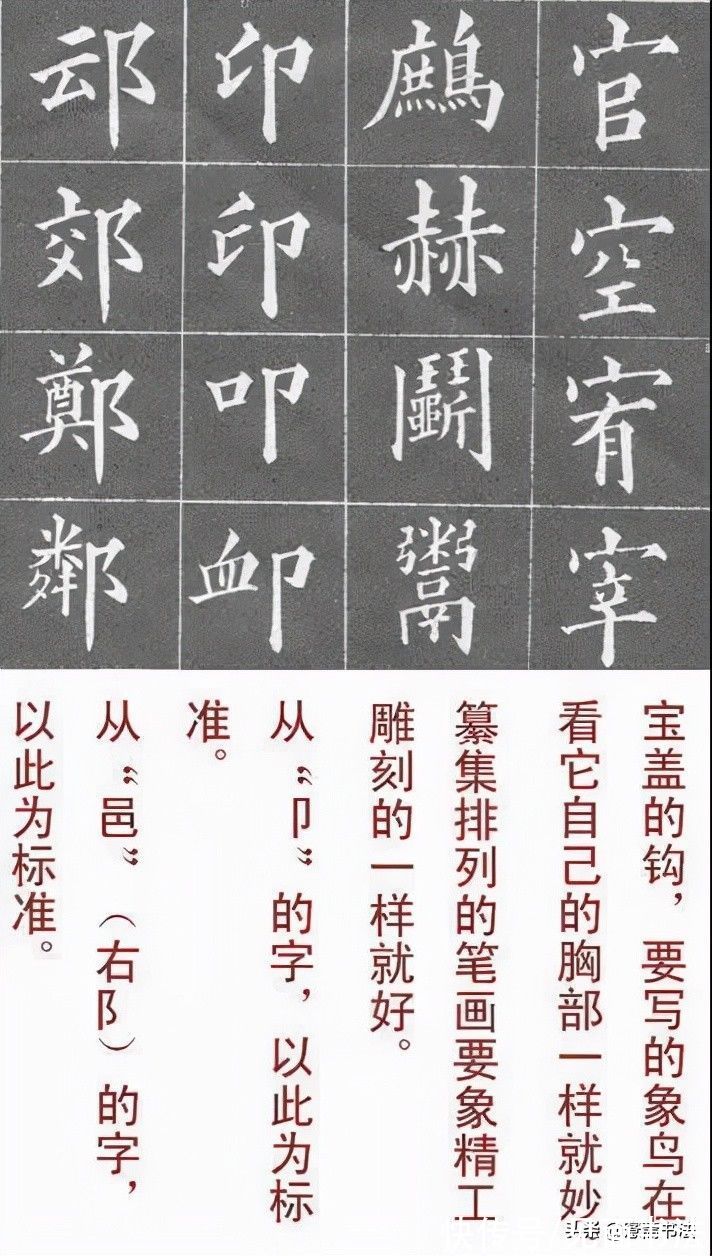 官空宥宰
鷓赫鬭鬻
印印叩卹
䢵郊鄭鄰
宝盖的钩，要写的象鸟在
看它自己的胸部一样就妙
纂集排列的笔画要象精工
雕刻的一样就好。
从“卩”的字，以此为标
准。
从“邑”（右阝）的字，
以此为标准。
快传号
头条 书法